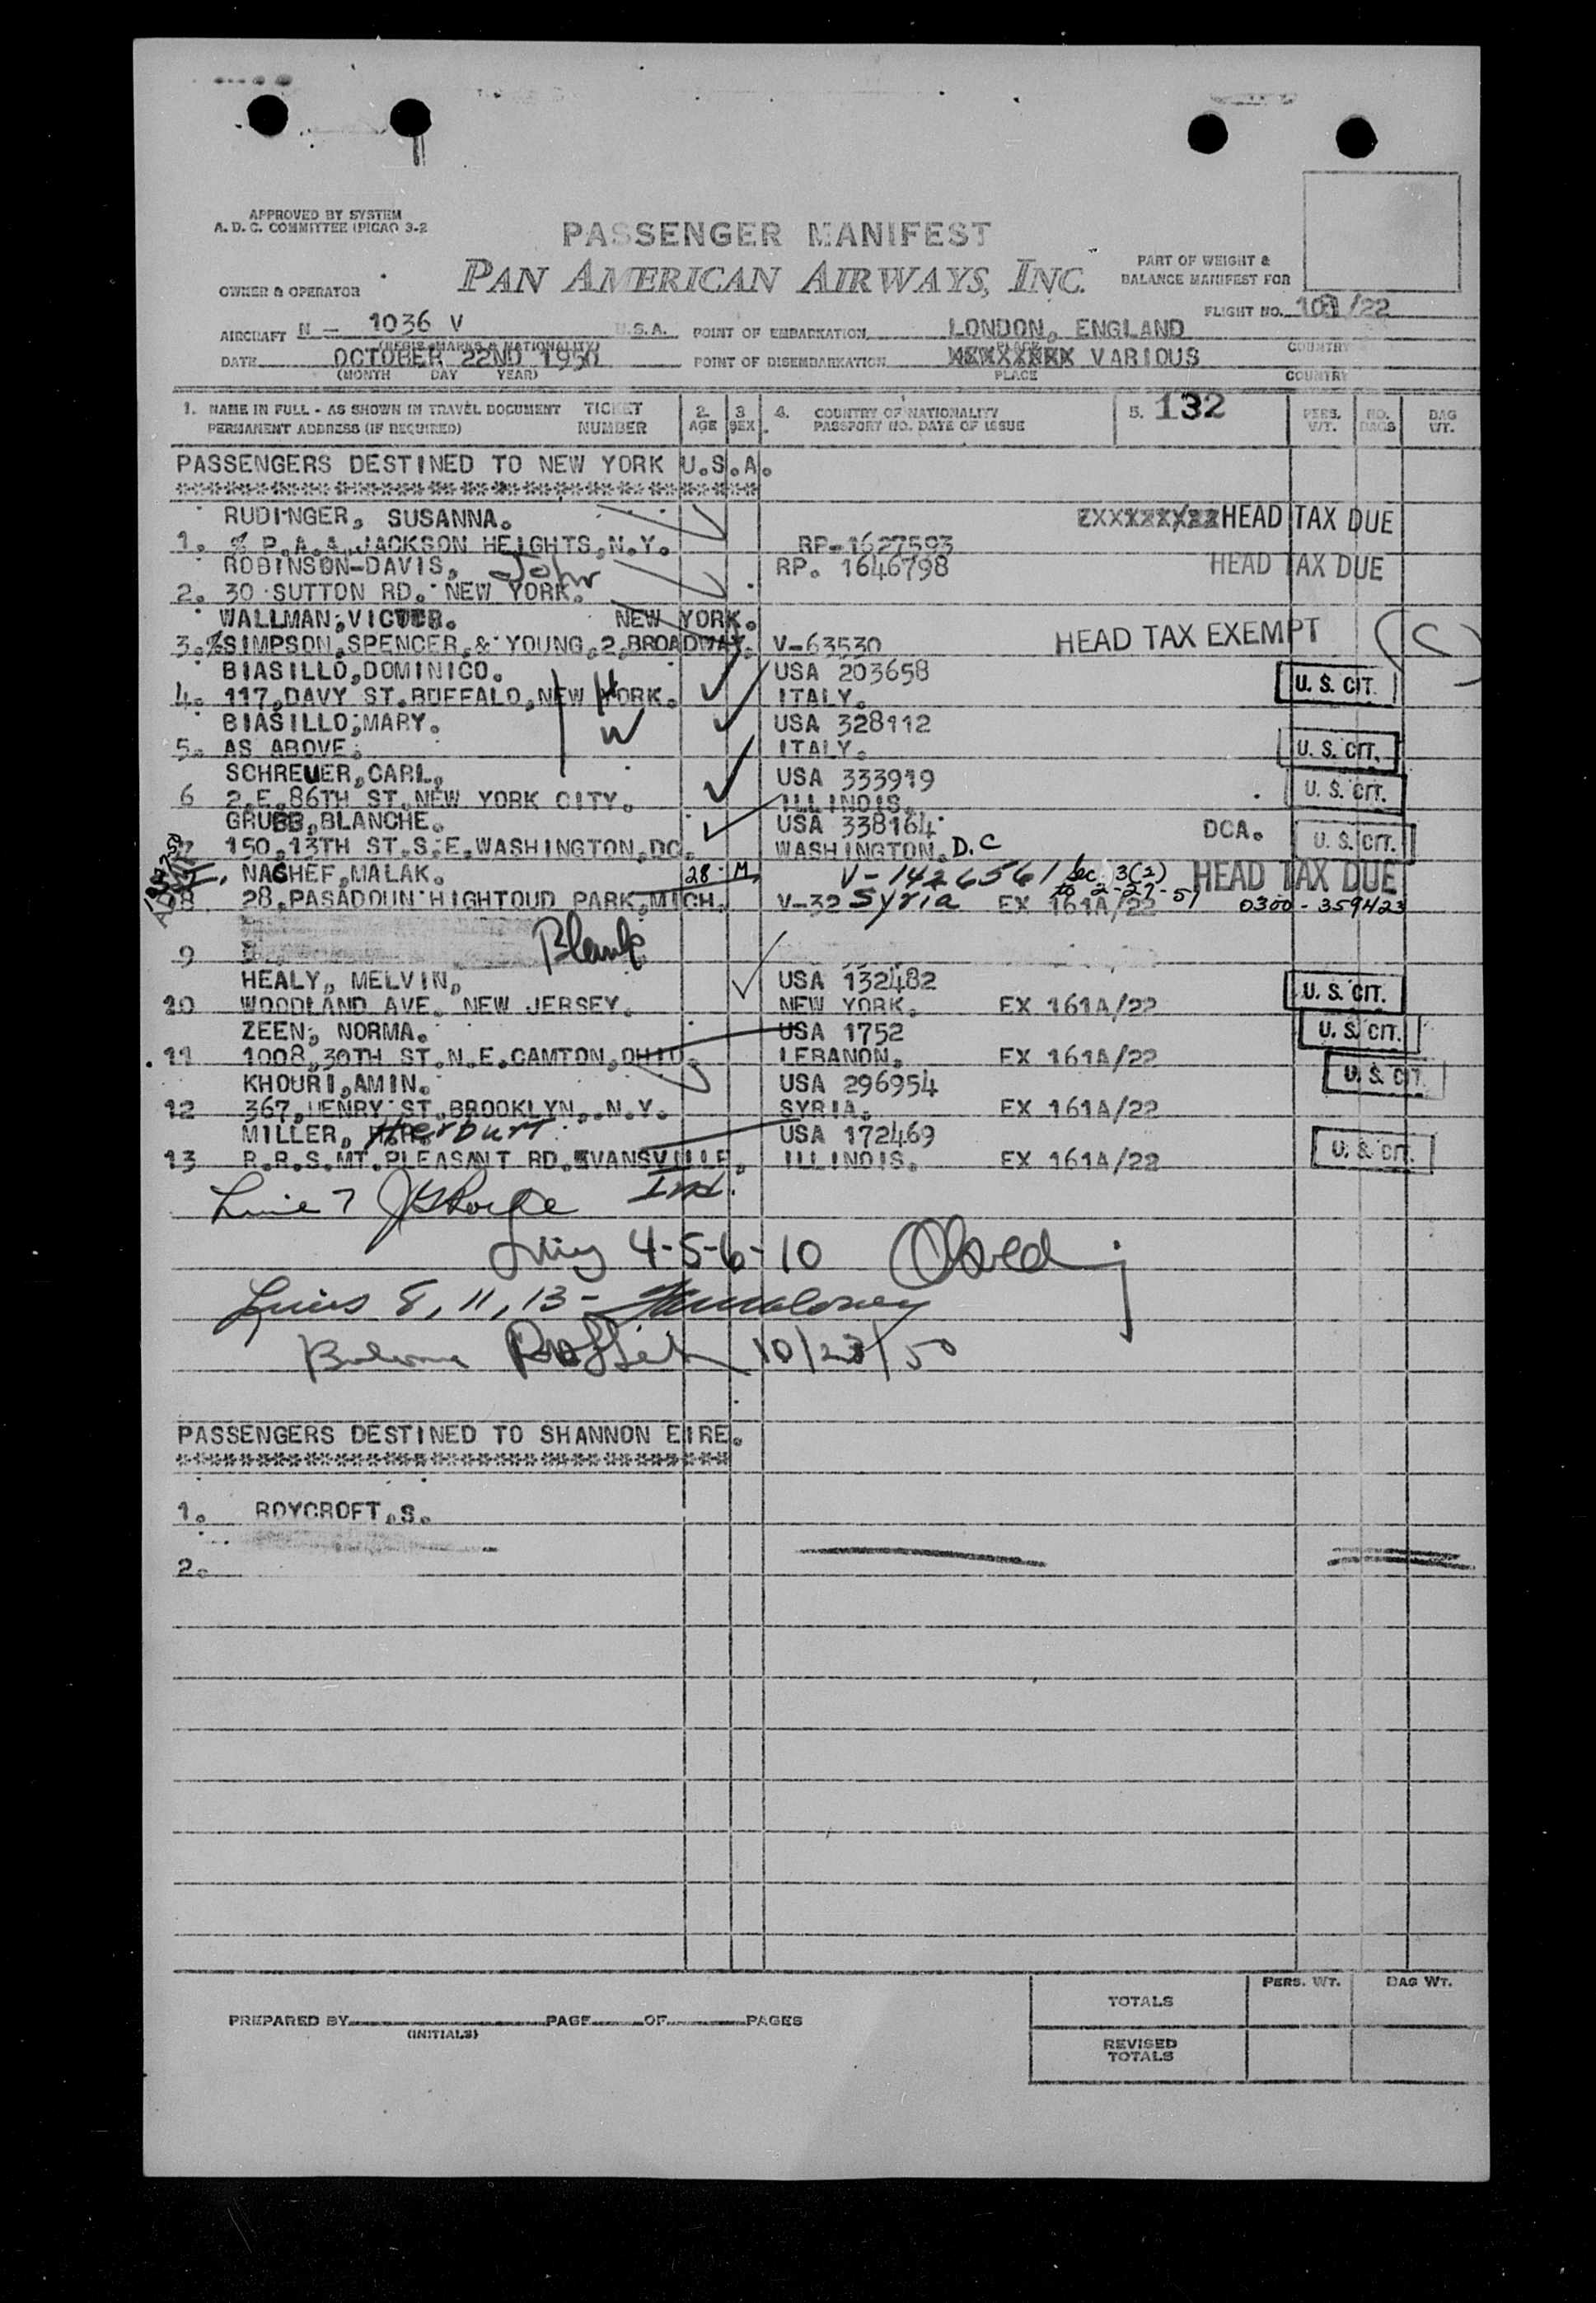 APPROVED BY SYSTEM
A. D. C. COMMITTEE (PICAO 3-2
PASSENGER MANIFEST
PAN AMERICAN AIRWAYS, INC.
PART OF WEIGHT &
BALANCE MANIFEST FOR
OWNER & OPERATOR
FLIGHT NO. 101/22
AIRCRAFT N - 1036 V U.S.A. POINT OF EMBARKATION LONDON, ENGLAND
(REGIS. MARKS & NATIONALITY) PLACE COUNTRY
DATE OCTOBER 22ND 1950 POINT OF DISEMBARKATION VARIOUS
(MONTH DAY YEAR) PLACE COUNTRY
1. NAME IN FULL - AS SHOWN IN TRAVEL DOCUMENT TICKET 2. 3 4. COUNTRY OF NATIONALITY 5. 132 PERS. NO. BAG
PERMANENT ADDRESS (IF REQUIRED) NUMBER AGE SEX PASSPORT NO. DATE OF ISSUE WT. BAGS WT.
PASSENGERS DESTINED TO NEW YORK U.S.A.
RUDINGER, SUSANNA. HEAD TAX DUE
1. % P.A.A. JACKSON HEIGHTS, N.Y. RP-1627593
ROBINSON-DAVIS, John RP. 1646798 HEAD TAX DUE
2. 30 SUTTON RD. NEW YORK.
WALLMAN, VICTOR. NEW YORK.
3. %SIMPSON, SPENCER, & YOUNG, 2, BROADWAY. V-63530 HEAD TAX EXEMPT (S)
BIASILLO, DOMINICO. USA 203658
4. 117, DAVY ST. BUFFALO, NEW YORK. H ITALY. U. S. CIT.
BIASILLO, MARY. W USA 328112
5. AS ABOVE. ITALY. U. S. CIT.
SCHREUER, CARL. USA 333919 U. S. CIT.
6 2, E, 86TH ST. NEW YORK CITY. ILLINOIS.
GRUBB, BLANCHE. USA 338164 DCA. U. S. CIT.
7 150, 13TH ST. S.E. WASHINGTON, DC. WASHINGTON, D.C
NACHEF, MALAK. 28 M, V-1426561 Sec. 3(2) HEAD TAX DUE
to 2-27-51
8. 28, PASADOUN HIGHTOUD PARK, MICH. V-32 Syria EX 161A/22 0300-359423
9 Blank
HEALY, MELVIN, USA 132482 U. S. CIT.
10 WOODLAND AVE. NEW JERSEY. NEW YORK. EX 161A/22
ZEEN, NORMA. USA 1752 U. S. CIT.
11 1008, 30TH ST. N.E. CAMTON, OHIO. LEBANON. EX 161A/22
KHOURI, AMIN. USA 296954 U. S. CIT.
12 367, HENRY ST. BROOKLYN, N.Y. SYRIA. EX 161A/22
MILLER, Herburt USA 172469 U. S. CIT.
13 R.R.S. MT. PLEASANT RD. EVANSVILLE, ILLINOIS. EX 161A/22
Ind.
Line 7
4-5-6-10
Lines 8, 11, 13-
10/23/50
PASSENGERS DESTINED TO SHANNON EIRE.
1. ROYCROFT, S.
2.
PERS. WT. BAG WT.
TOTALS
PREPARED BY (INITIALS) PAGE OF PAGES
REVISED
TOTALS